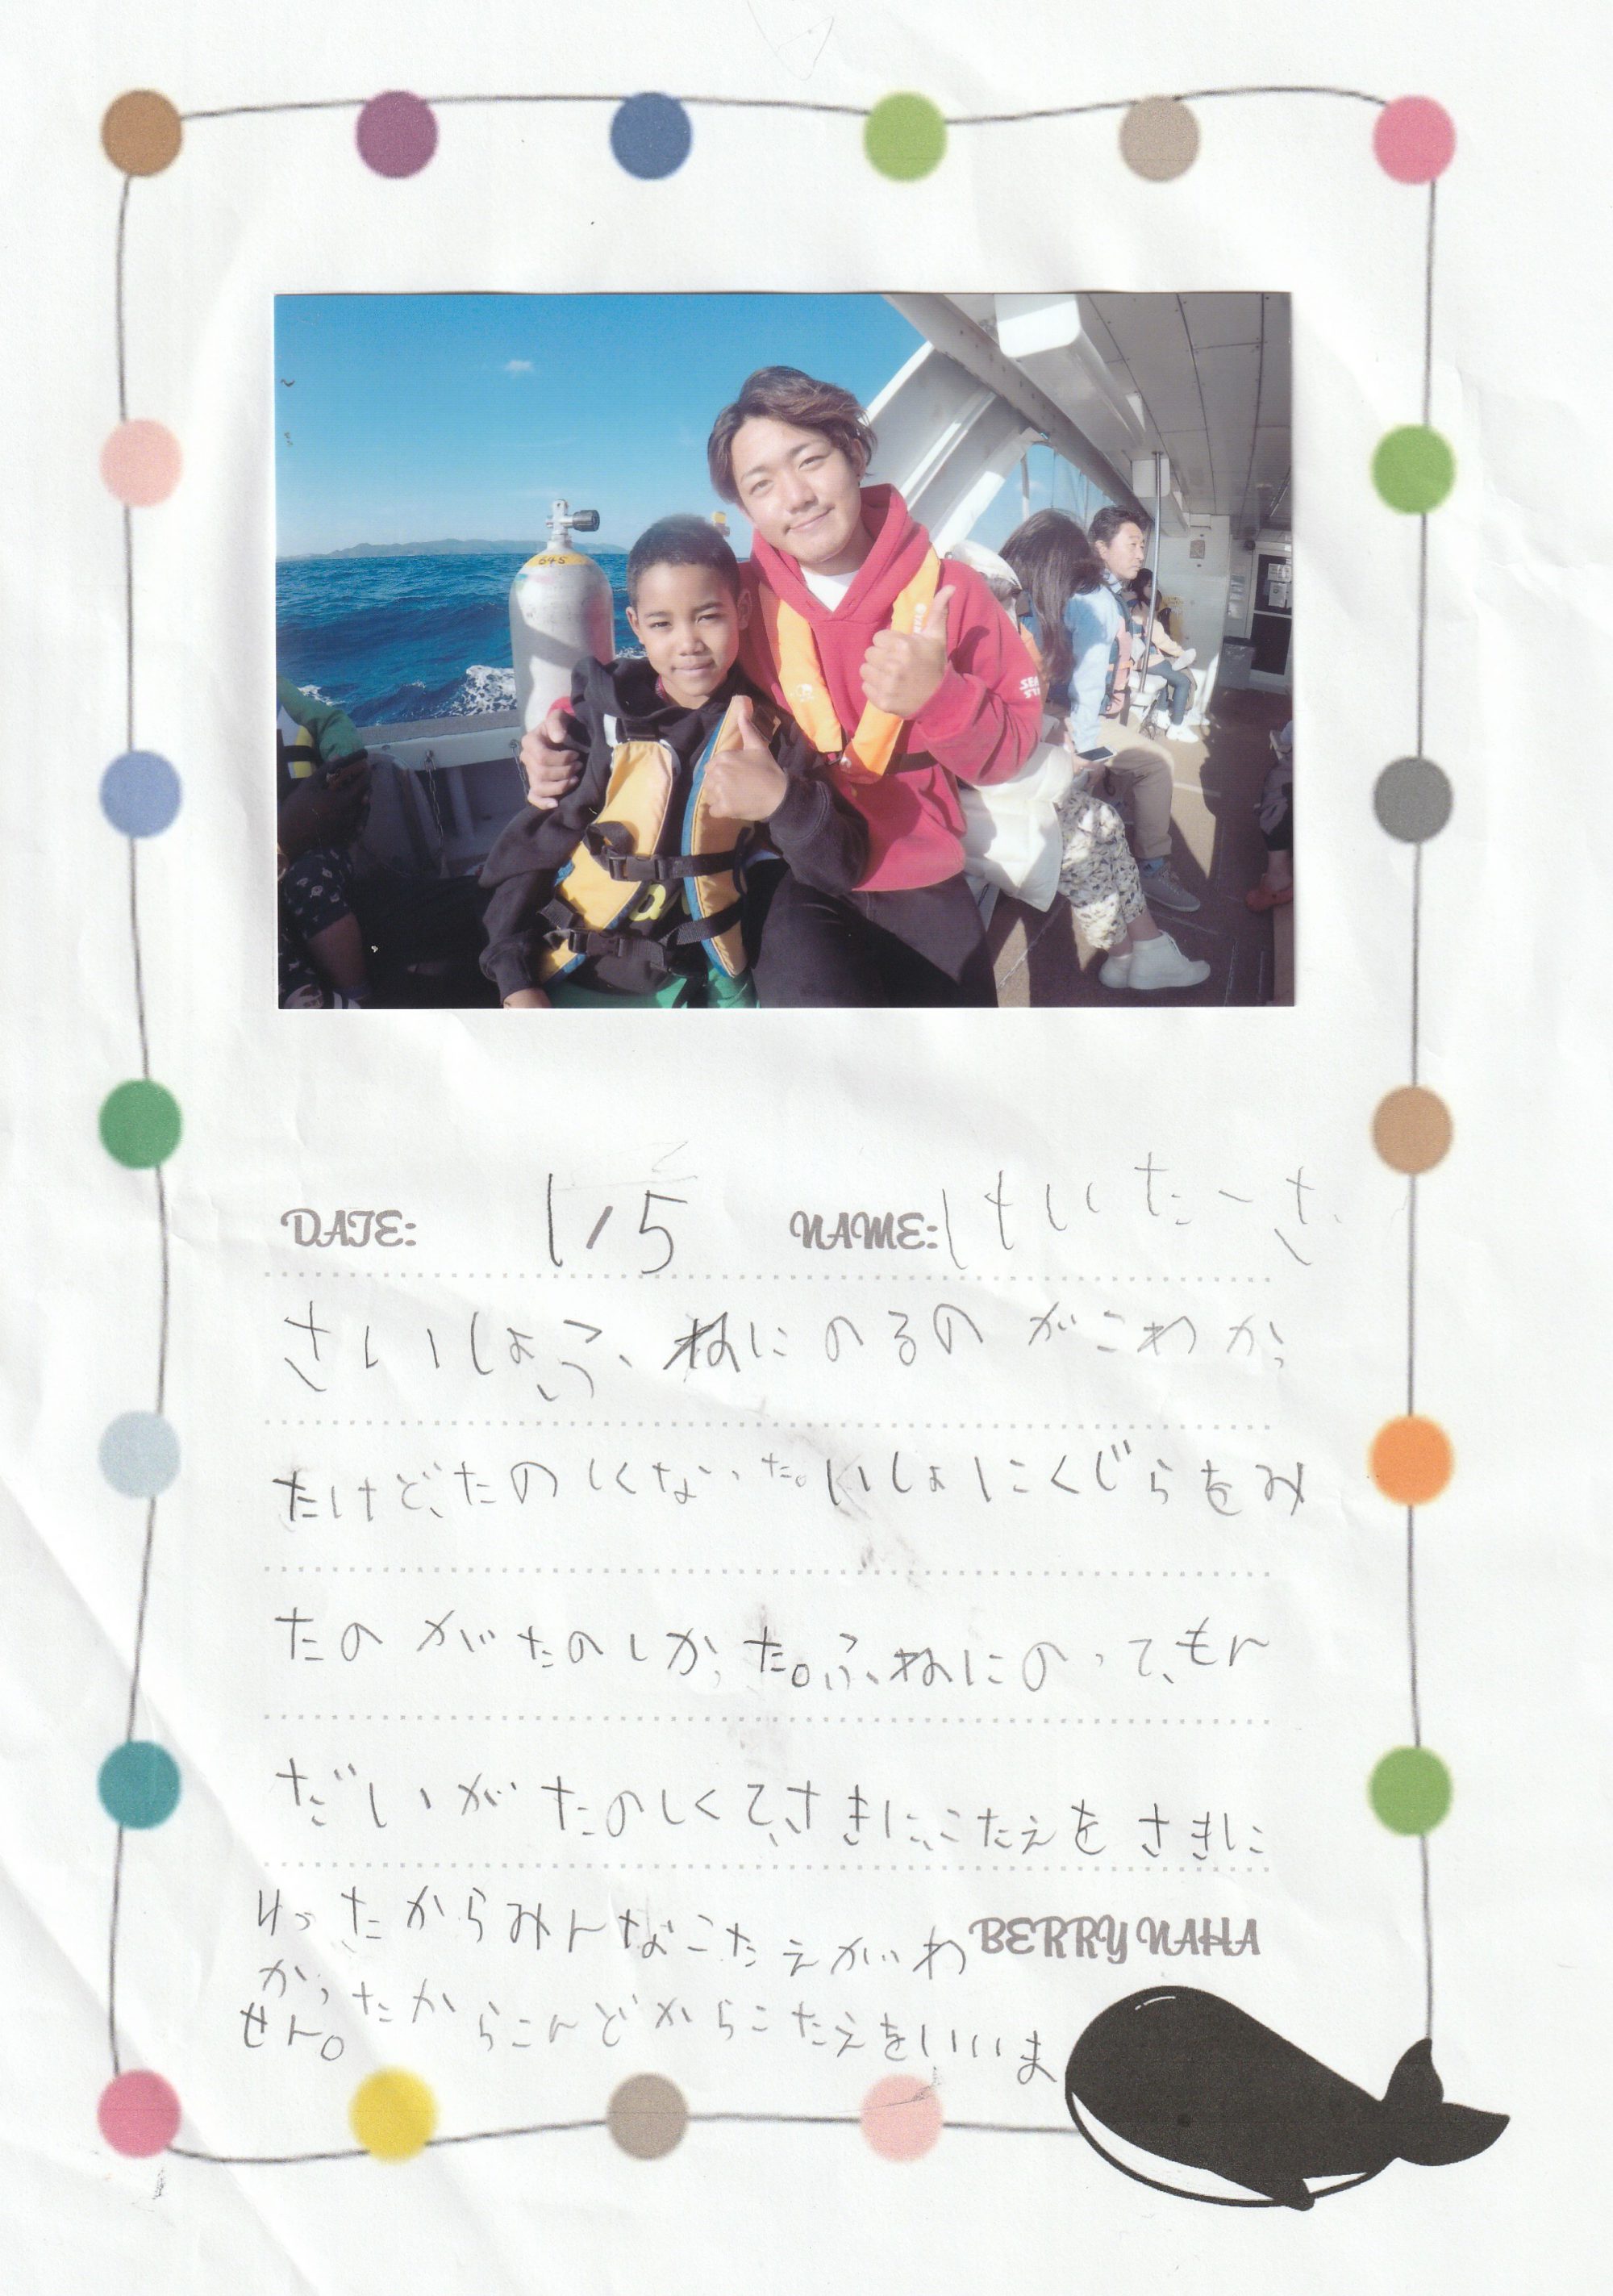 645
DATE: 1/5 NAME: けいたーさ
さいしょふねにのるのがこわかっ
たけど、たのしくなった。いしょにくじらをみ
たのがたのしかった。ふねにのって、もん
だいがたのしくて、さきに、こたえをさきに
ゆったからみんなこたえがわ
BERRY NAHA
かったからこんどからこたえをいいま
せん。